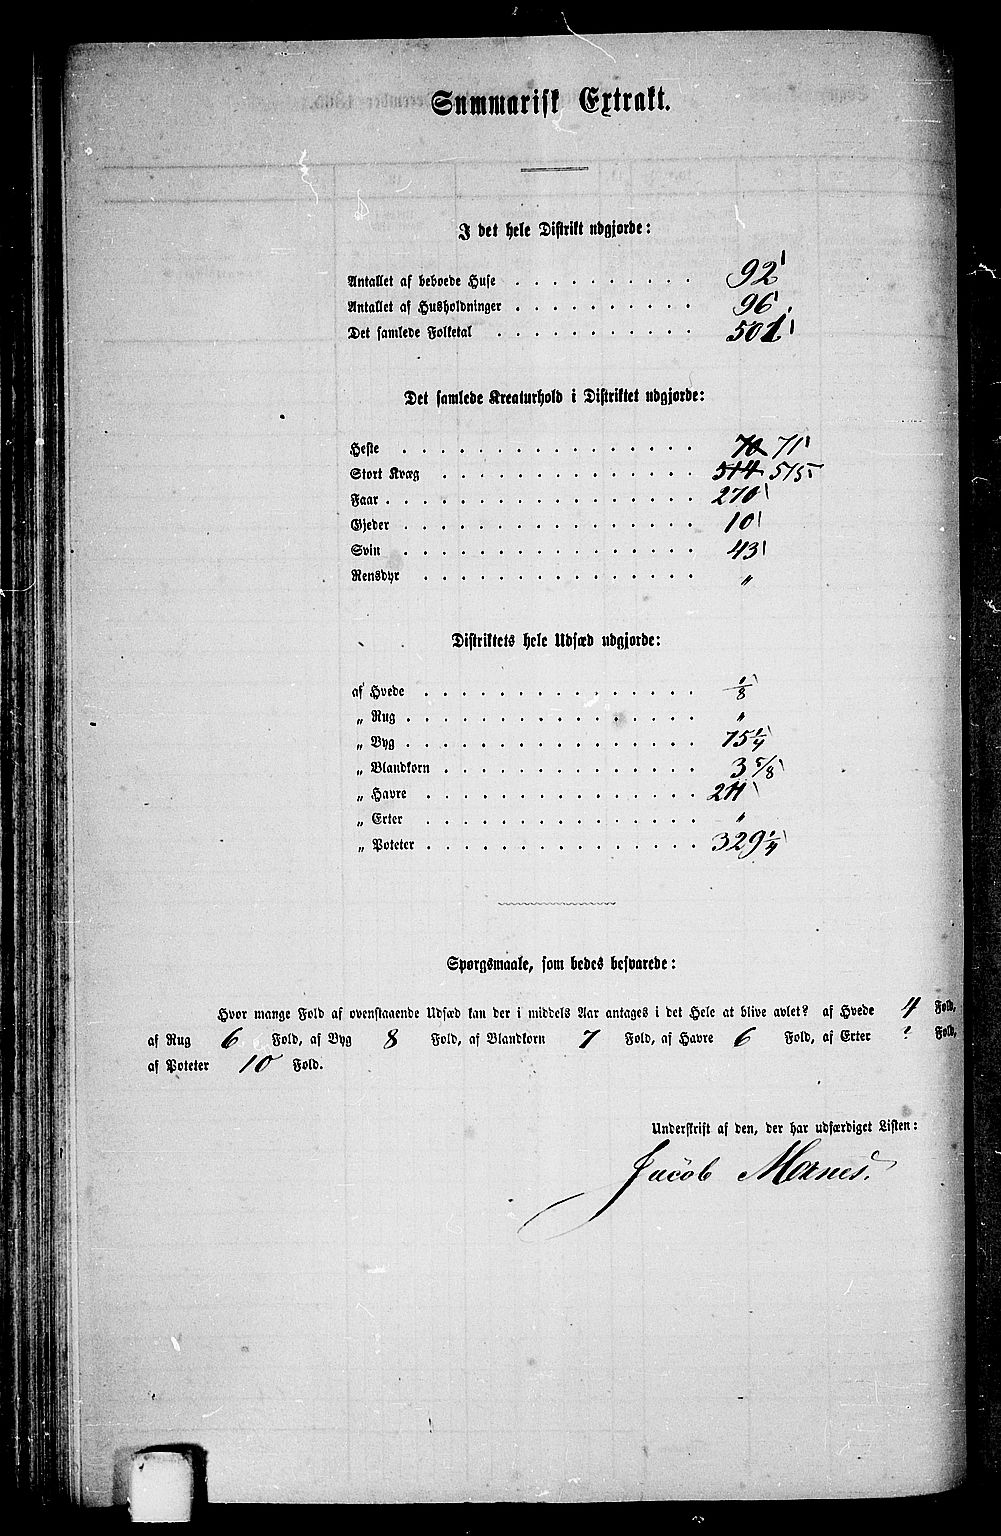 Summarisk Extrakt.
I det hele Distrikt udgjorde:
Antallet af beboede Huse . . . . . . . . . . . 92
Antallet af Husholdninger . . . . . . . . . . . 96
Det samlede Folketal . . . . . . . . . . . 501
Det samlede Kreaturhold i Distriktet udgjorde:
Heste . . . . . . . . . . . 70 71
Stort Kvæg . . . . . . . . . . . 514 515
Faar . . . . . . . . . . . 270
Gjeder . . . . . . . . . . . 10
Svin . . . . . . . . . . . 43
Rensdyr . . . . . . . . . . . "
Distriktets hele Udsæd udgjorde:
af Hvede . . . . . . . . . . . 1/8
„ Rug . . . . . . . . . . . "
„ Byg . . . . . . . . . . . 15 1/4
„ Blandkorn . . . . . . . . . . . 3 5/8
„ Havre . . . . . . . . . . .
„ Erter . . . . . . . . . . . "
„ Poteter . . . . . . . . . . . 329 1/4
Spørgsmaale, som bedes besvarede:
Hvor mange Fold af ovenstaaende Udsæd kan der i middels Aar antages i det Hele at blive avlet? af Hvede 4 Fold,
af Rug 6 Fold, af Byg 8 Fold, af Blandkorn 7 Fold, af Havre 6 Fold, af Erter ? Fold,
af Poteter 10 Fold.
Underskrift af den, der har udfærdiget Listen:
Jacob